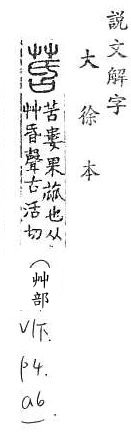 説文解字
大徐本
苦婁果蓏也从
艸昏聲古活切
(艸部 V1下. P4. a6.)